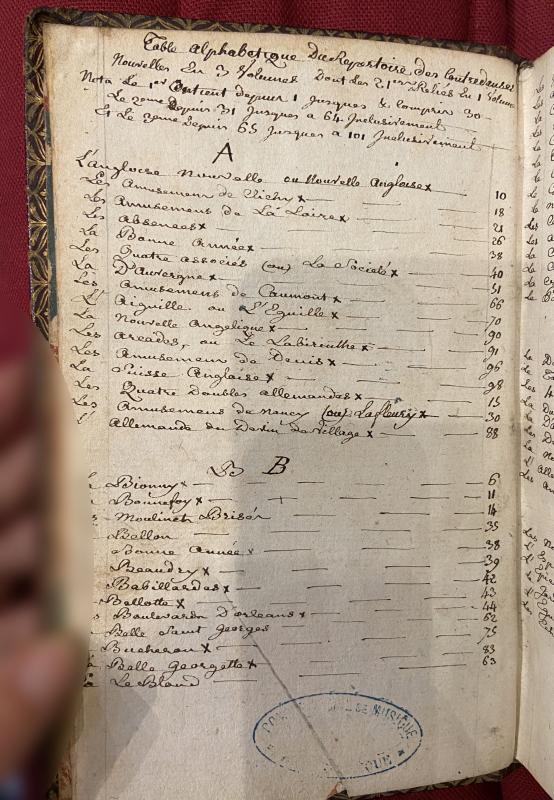 Table alphabetique Du Repertoire des Contredanses
Nouvelles En 3 Volumes Dont les 2 1ers Reliés En 1 Volume
Nota Le 1er Contient depuis 1 Jusques & Compris 30
Le 2eme Depuis 31 Jusques a 64 Inclusivement
Et Le 3eme Depuis 65 Jusques a 101 Inclusivement
A
L'Angloise Nouvelle ou Nouvelle Anglaise x 10
Les Amusemens de Vichy x 18
Les Amusemens de La Loire x 21
Les Absences x 26
La Bonne Année x 38
Les Quatre associés (ou) La Société x 40
La D'Auvergne x 51
Les Amusemens de Caumont x 66
L'Aiguille ou L'Eguille x 70
La Nouvelle Angelique x 90
Les Arcades, ou Le Labirinthe x 91
Les Amusemens de Denis x 96
La Suisse Anglaise x 98
Les Quatre Doubles allemandes x 15
Les Amusemens de Nancy (ou) La fleury x 30
L' Allemande du Devin du Village x 88
B B
Bionny x 6
Bonnefoy x 11
Moulinets Brisés 14
Ballon 35
Bonne année x 38
Beaudry x 39
Babillardes x 42
Bellotte x 43
Boulevards D'orleans x 44
Belle Saint Georges 62
Bucheron x 75
Belle Georgette x 83
Le Blond 63
DE MUSIQUE